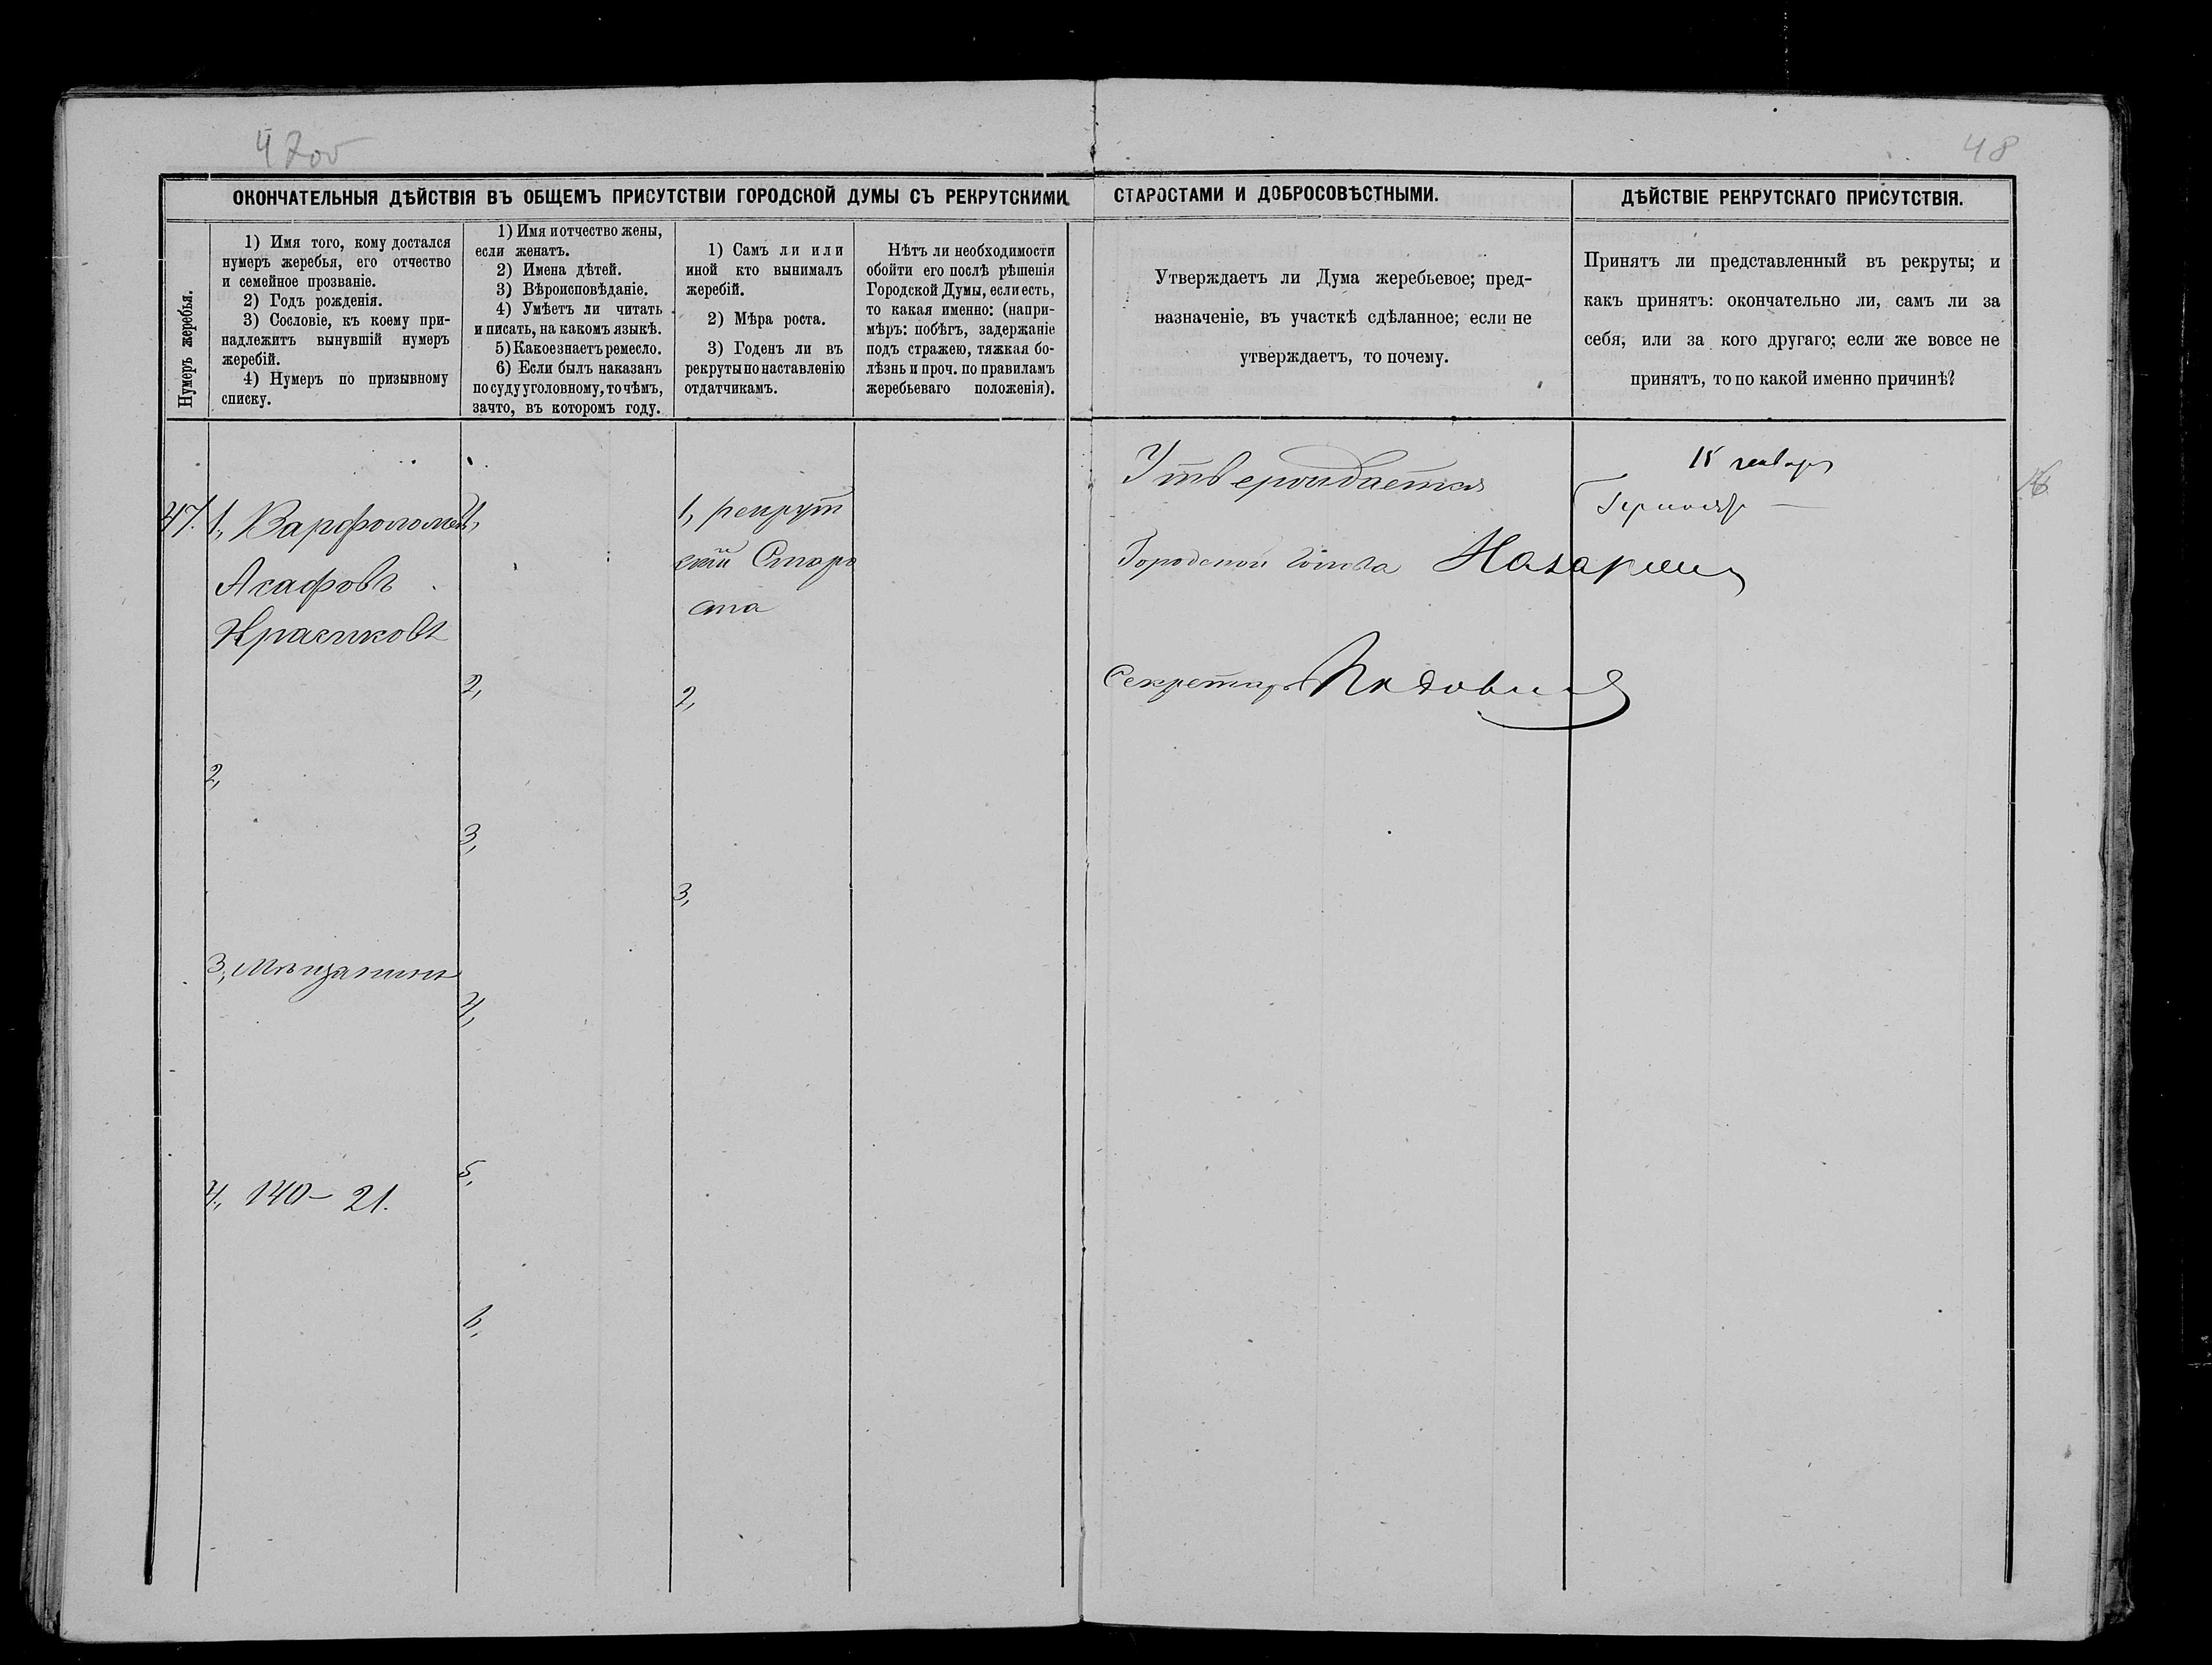 47об
48
ОКОНЧАТЕЛЬНЫЯ ДѢЙСТВІЯ ВЪ ОБЩЕМЪ ПРИСУТСТВІИ ГОРОДСКОЙ ДУМЫ СЪ РЕКРУТСКИМИ СТАРОСТАМИ И ДОБРОСОВѢСТНЫМИ.
ДѢЙСТВІЕ РЕКРУТСКАГО ПРИСУТСТВІЯ.
Нумеръ жеребья.
1) Имя того, кому достался
нумеръ жеребья, его отчество
и семейное прозваніе.
2) Годъ рожденія.
3) Сословіе, къ коему при-
надлежитъ вынувшій нумеръ
жеребій.
4) Нумеръ по призывному
списку.
1) Имя и отчество жены,
если женатъ.
2) Имена дѣтей.
3) Вѣроисповѣданіе.
4) Умѣетъ ли читать
и писать, на какомъ языкѣ.
5) Какое знаетъ ремесло.
6) Если былъ наказанъ
по суду уголовному, то чѣмъ,
за что, въ которомъ году.
1) Самъ ли или
иной кто вынималъ
жеребій.
2) Мѣра роста.
3) Годенъ ли въ
рекруты по наставленію
отдатчикамъ.
Нѣтъ ли необходимости
обойти его послѣ рѣшенія
Городской Думы, если есть,
то какая именно: (напри-
мѣръ: побѣгъ, задержаніе
подъ стражею, тяжкая бо-
лѣзнь и проч. по правиламъ
жеребьеваго положенія).
Утверждаетъ ли Дума жеребьевое; пред-
назначеніе, въ участкѣ сдѣланное; если не
утверждаетъ, то почему.
Принятъ ли представленный въ рекруты; и
какъ принятъ: окончательно ли, самъ ли за
себя, или за кого другаго; если же вовсе не
принятъ, то по какой именно причинѣ?
47.
1, Варфоломей
Асафовъ
Красиковъ
2,
3, Мѣщанинъ
4, 140 – 21.
1,
2,
3,
4,
5,
6,
1, рекрут
скій Старо
ста
2,
3,
Утверждается
Городской голова
Секретарь
15 января